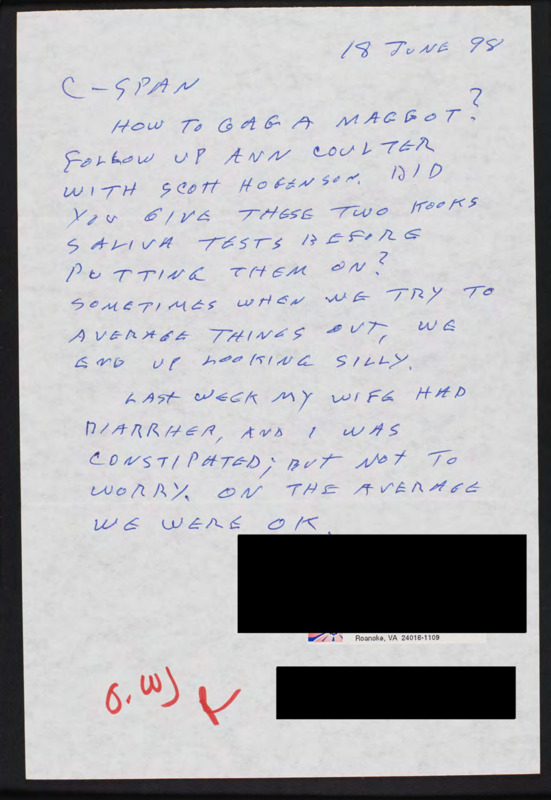 18 JUNE 98
C-SPAN
HOW TO GAG A MAGGOT?
FOLLOW UP ANN COULTER
WITH SCOTT HOGENSON. DID
YOU GIVE THESE TWO KOOKS
SALIVA TESTS BEFORE
PUTTING THEM ON?
SOMETIMES WHEN WE TRY TO
AVERAGE THINGS OUT, WE
END UP LOOKING SILLY.
LAST WEEK MY WIFE HAD
DIARRHER, AND I WAS
CONSTIPATED; BUT NOT TO
WORRY. ON THE AVERAGE
WE WERE OK.
Roanoke, VA 24018-1109